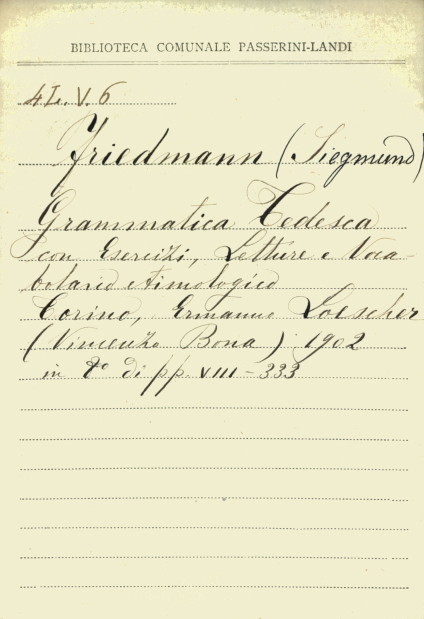 BIBLIOTECA COMUNALE PASSERINI-LANDI
4L. V. 6
Friedmann (Siegmund)
Grammatica Tedesca
con Esercizi, Letture e Voca-
bolario etimologico
Torino, Ermanno Loescher
(Vincenzo Bona) 1902
in 8º di pp. VIII-333